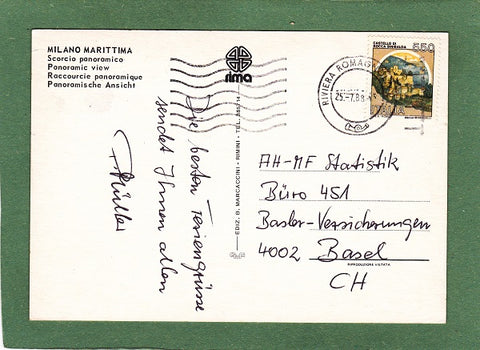 MILANO MARITTIMA
Scorcio panoramico
Panoramic view
Raccourcie panoramique
Panoramische Ansicht
rima
CASTELLO DI
ROCCA SINIBALDA
550
RIVIERA ROMAG
25-7.88
Die besten Feriengrüsse
sendet Ihnen allen
EDIZ. B. MARCACCINI - RIMINI - TEL.
AH-MF Statistik
Büro 451
Basler-Versicherungen
4002 Basel
RIPRODUZIONE VIETATA
CH